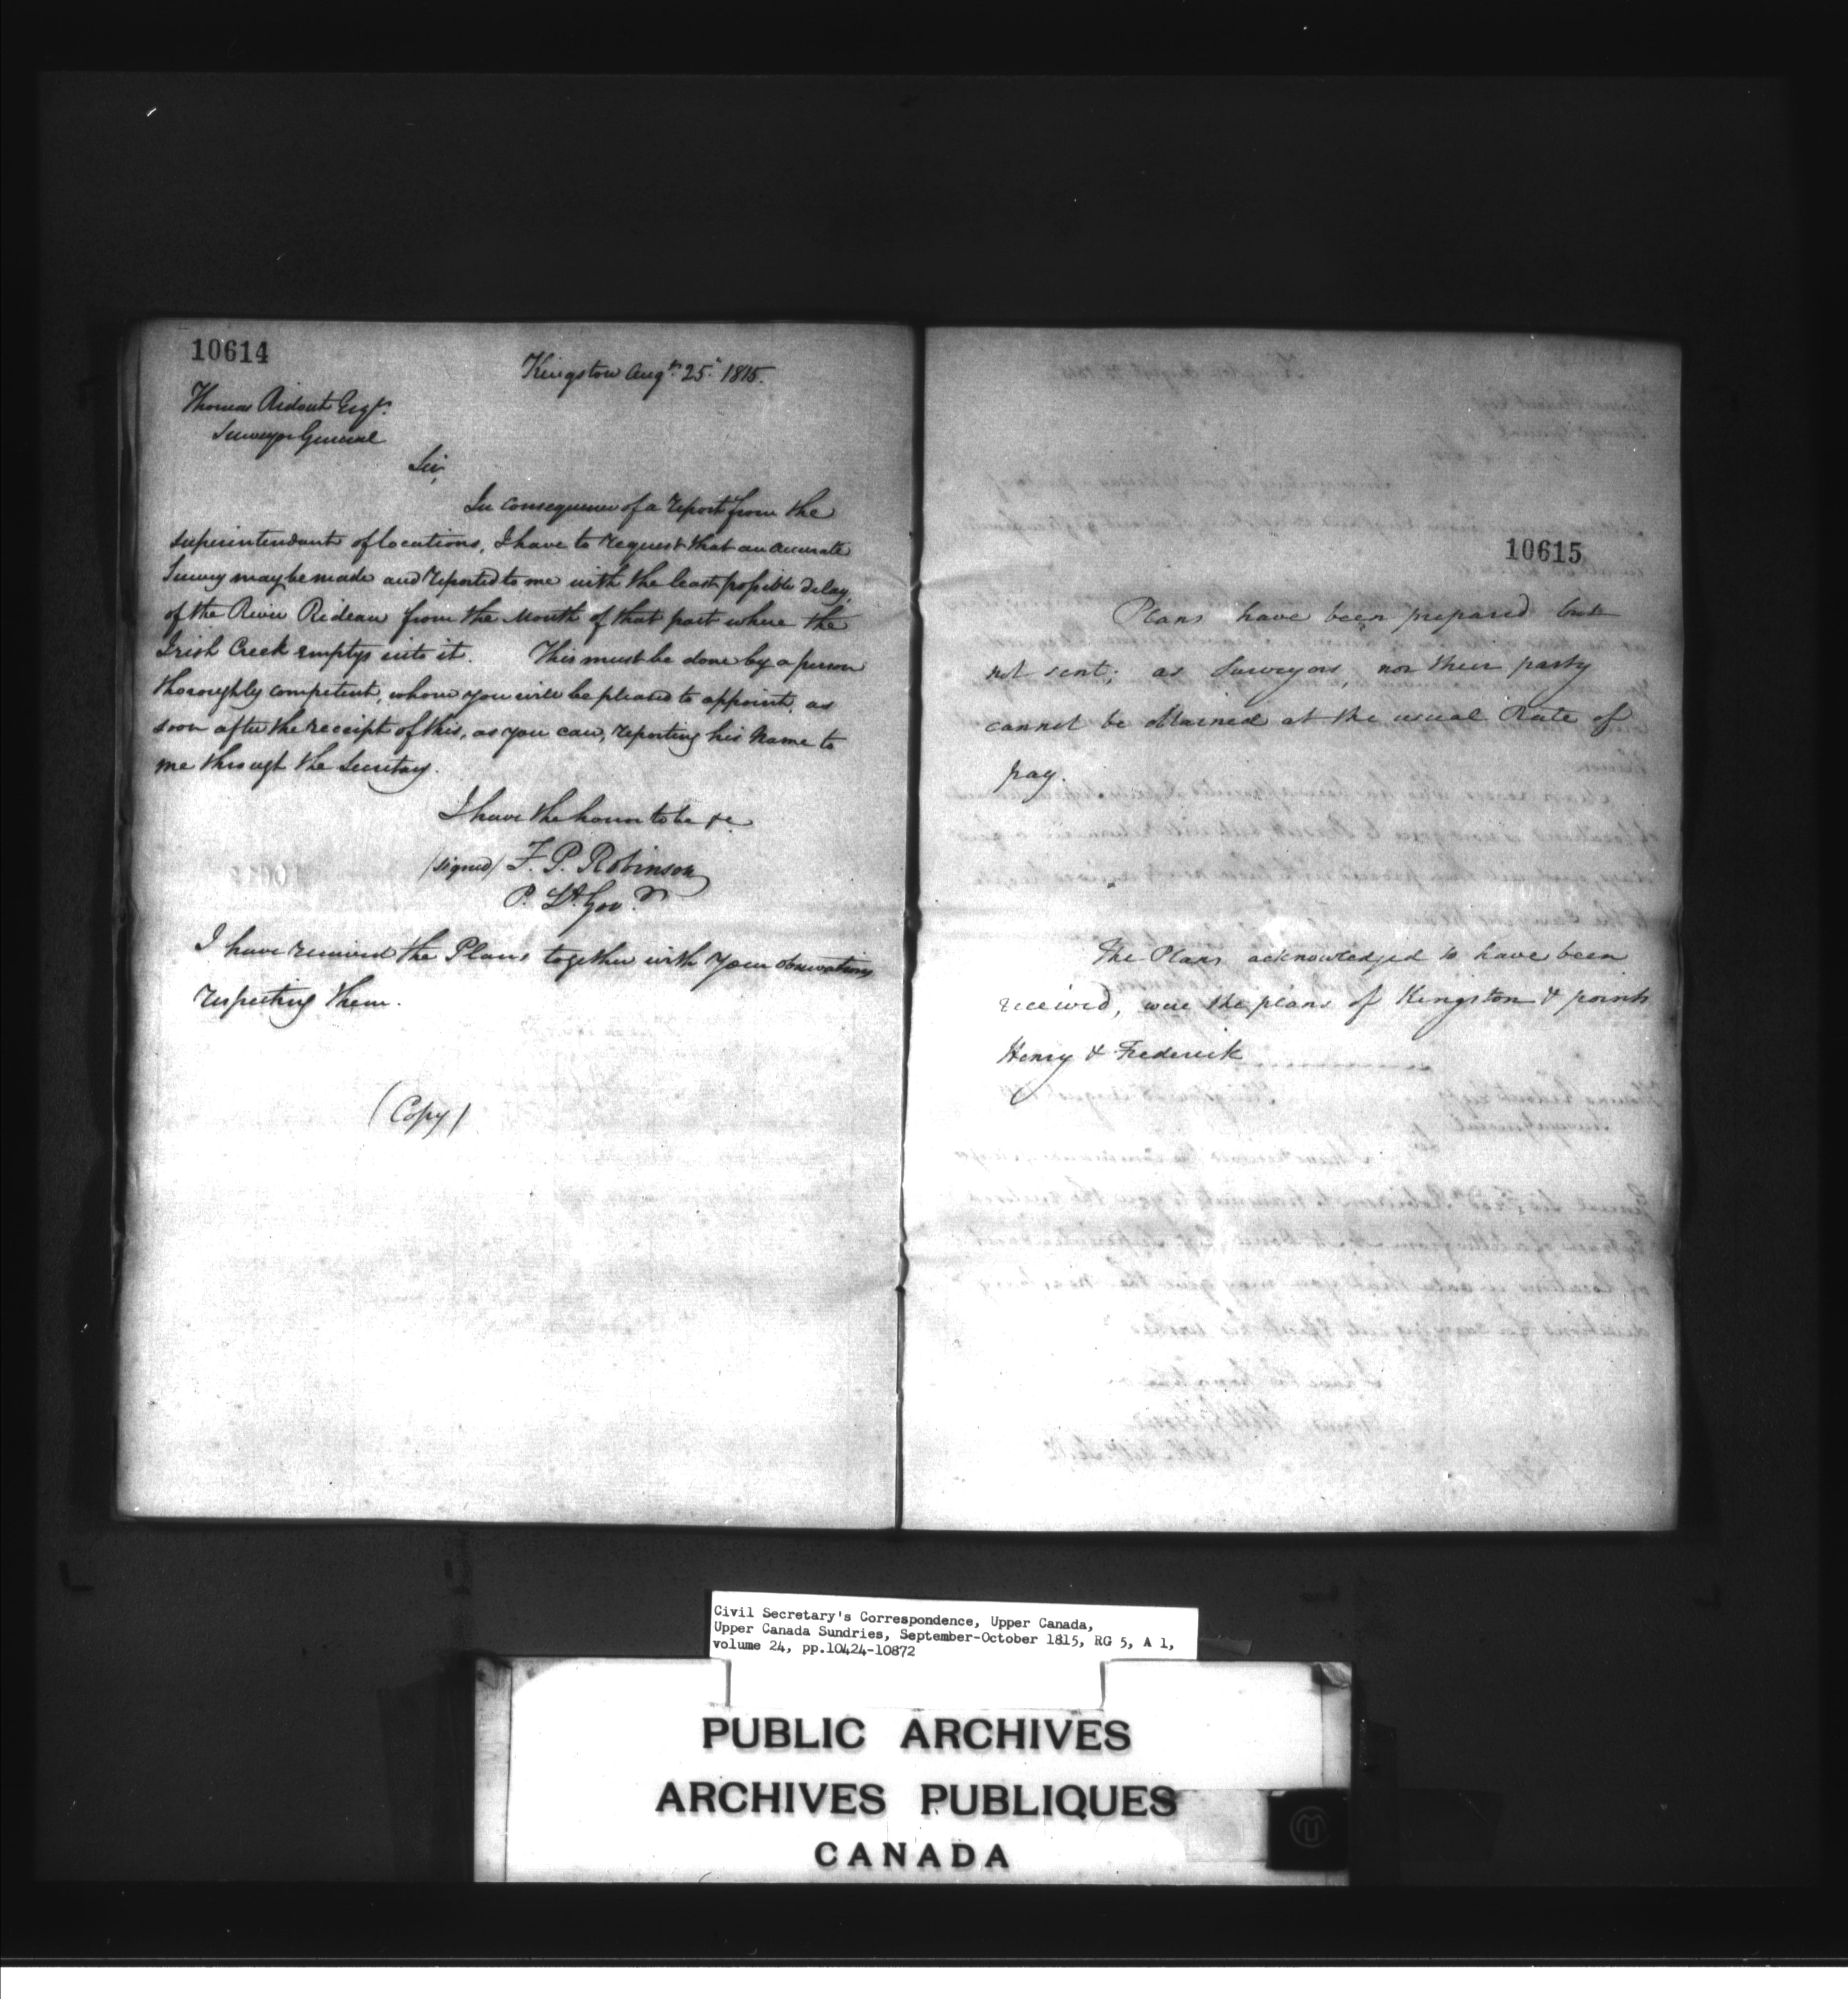 10614
Kingston Augt. 25th 1815.
Thomas Ridout Esqr.
Surveyor General
Sir,
In consequence of a report from the
superintendant of locations, I have to request that an accurate
Survey may be made and reported to me with the least possible delay,
of the River Rideau from the Mouth of that part where the
Irish Creek emptys into it. This must be done by a person
thoroughly competent, whom you will be pleased to appoint, as
soon after the receipt of this, as you can, reporting his Name to
me through the Secretary.
I have the honor to be &c
(signed) F. P. Robinson
P. Lt. Govr.
I have received the Plans together with your observations
respecting them.
(Copy)
10615
Plans have been prepared but
not sent; as Surveyors, nor their party
cannot be obtained at the usual Rate of
pay.
The Plans acknowledged to have been
received, were the plans of Kingston & points
Henry & Frederick
Civil Secretary's Correspondence, Upper Canada,
Upper Canada Sundries, September-October 1815, RG 5, A 1,
volume 24, pp.10424-10872
PUBLIC ARCHIVES
ARCHIVES PUBLIQUES
CANADA